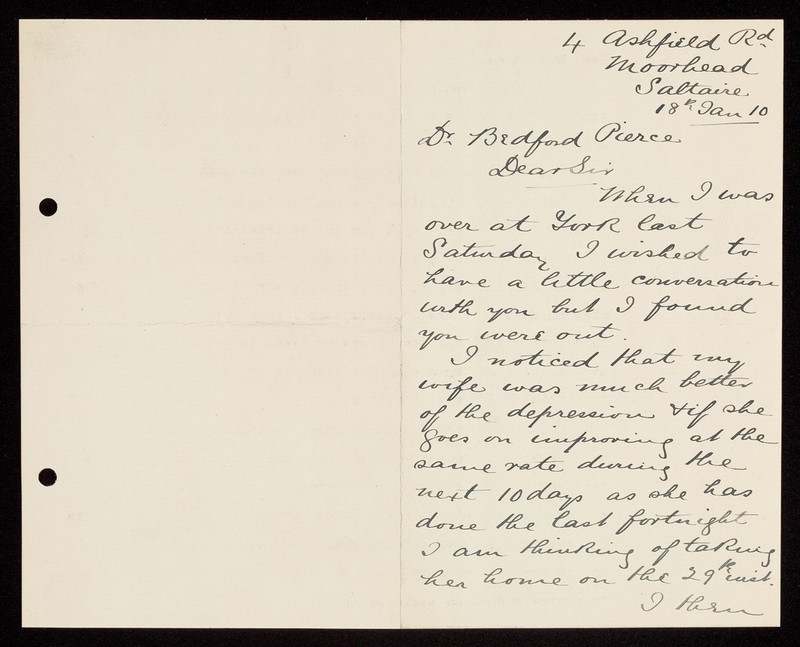 4 Ashfield Rd.
Moorhead
Saltaire
18th Jan 10
Dr. Bedford Pierce
Dear Sir
When I was
over at York last
Saturday I wished to
have a little conversation
with you but I found
you were out.
I noticed that my
wife was much better
of the depression & if she
goes on improving at the
same rate during the
next 10 days as she has
done the last fortnight
I am thinking of taking
her home on the 29th inst.
I then